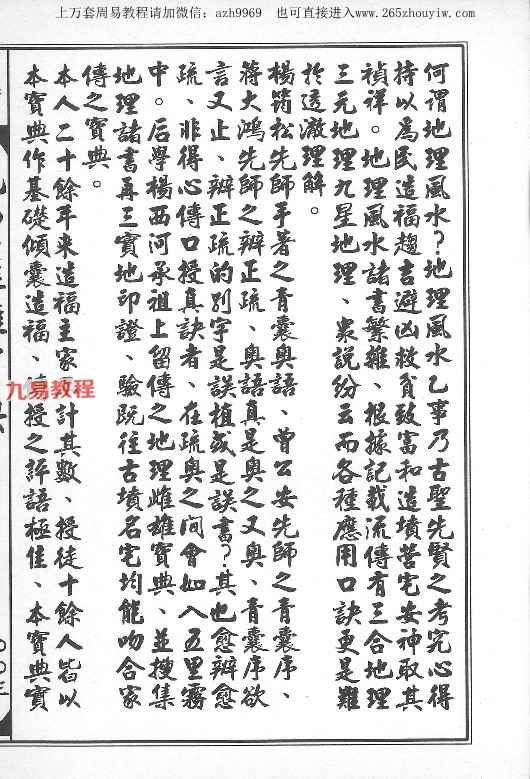 上万套周易教程请加微信：azh9969　也可直接进入www.265zhouyiw.com
何謂地理風水？地理風水乙事乃古聖先賢之考究心得
持以為民造福趨吉避凶救貧致富和造墳營宅安神取其
禎祥。地理風水諸書繁雜、根據記載流傳有三合地理
三元地理九星地理、衆説紛云而各種應用口訣更是難
於透澈理解。
楊筠松先師手著之青囊奧語、曾公安先師之青囊序、
蔣大鴻先師之辨正疏、奧語真是奧之又奧、青囊序欲
言又止、辨正疏的別字是誤植或是誤書？其也愈辨愈
疏、非得心傳口授真訣者、在疏奧之间會如入五里霧
中。后學楊西河承祖上留傳之地理雌雄寶典、並搜集
地理諸書再三實地印證、驗既往古墳名宅均能吻合家
傳之寶典。
本人二十餘年來造福主家計其數、授徒十餘人皆以
本寶典作基礎傾囊造福、授之評語極佳、本寶典實
九易教程
〇〇三